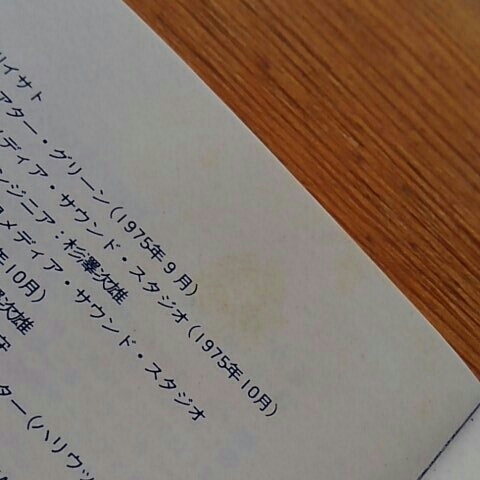 リイサト
アター・グリーン(1975年9月)
メディア・サウンド・スタジオ(1975年10月)
ンジニア:杉澤次雄
メディア・サウンド・スタジオ
年10月)
澤次雄
守
ター(ハリウッ